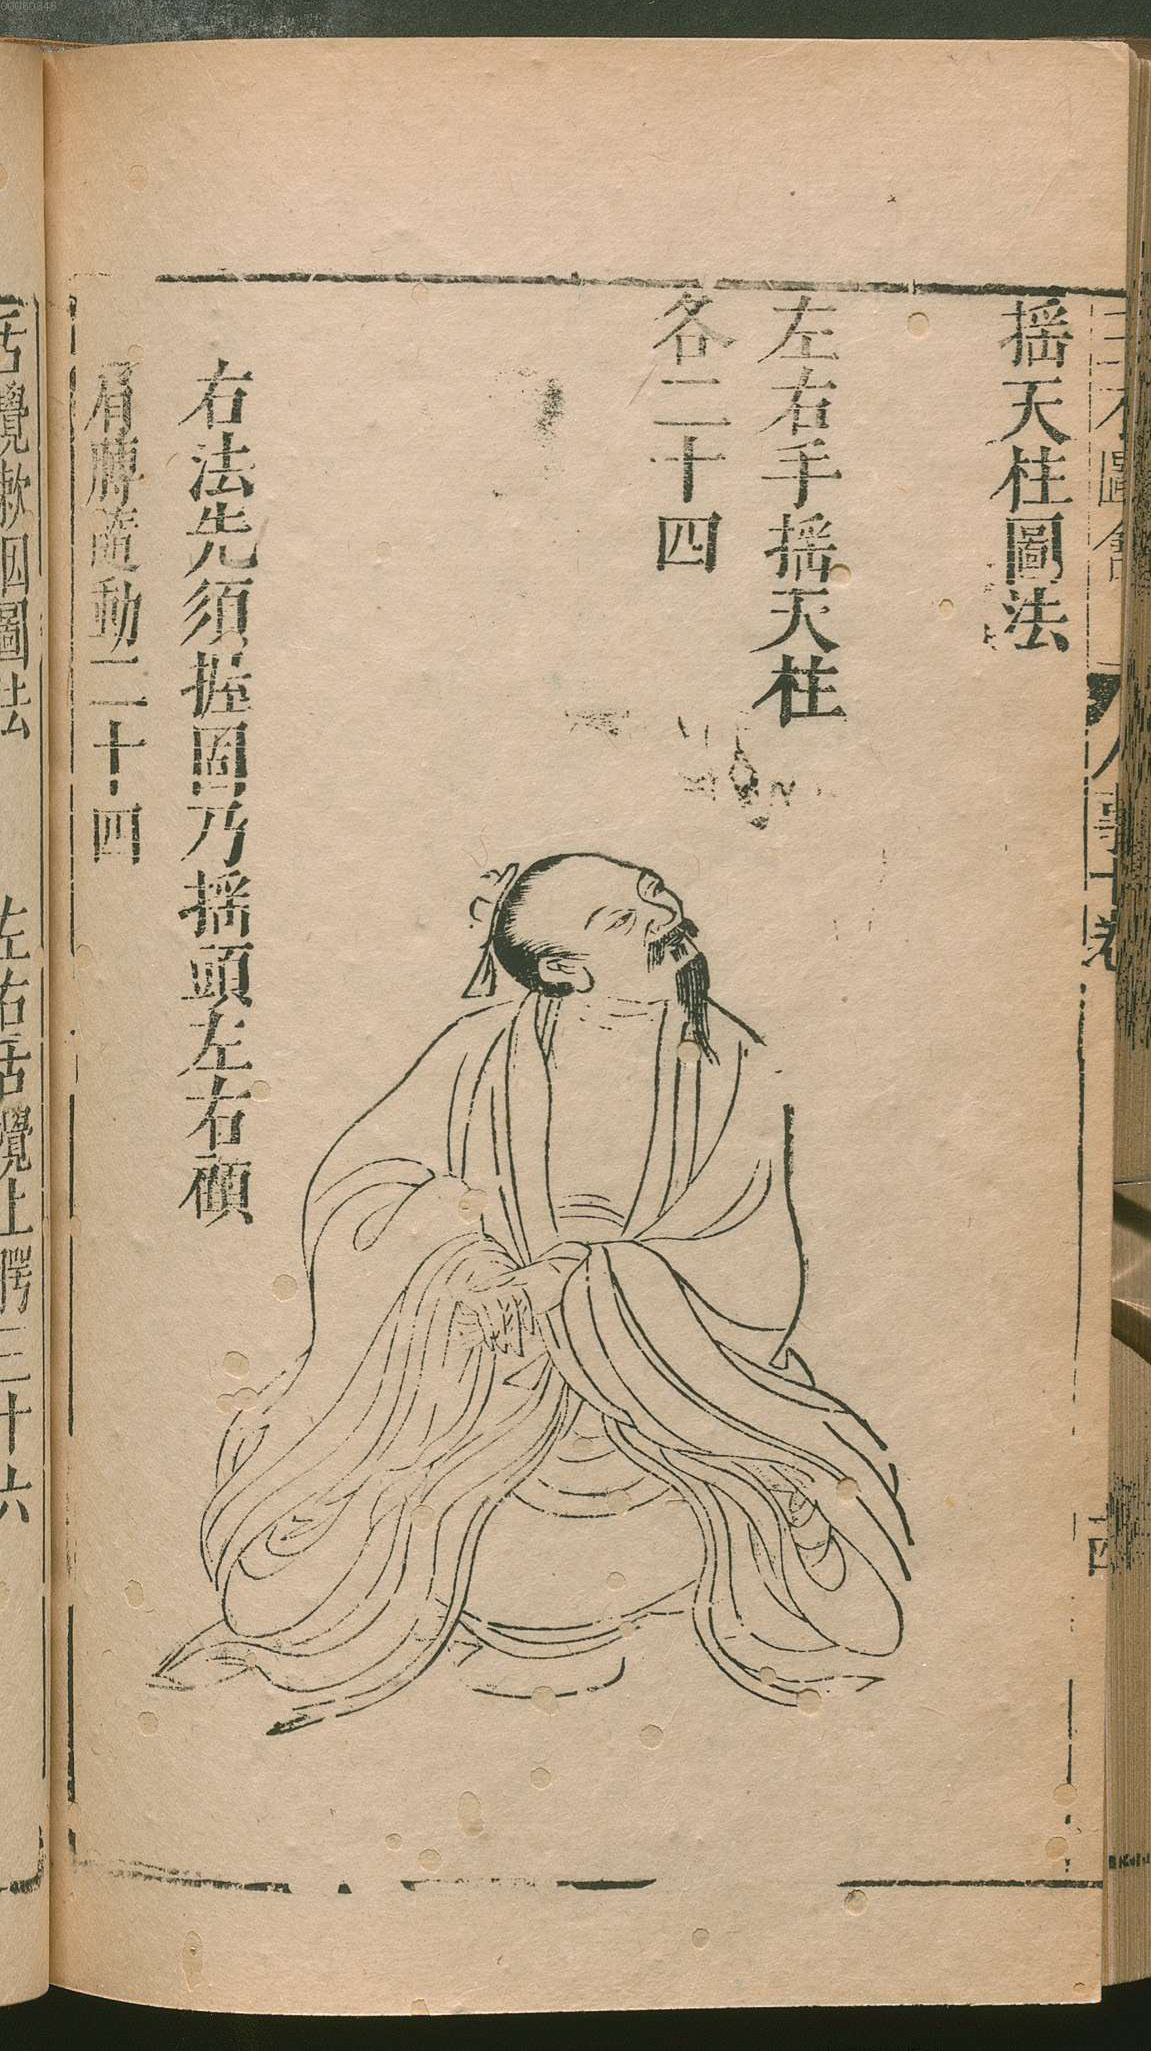 搖天柱圖法
左右手搖天柱
各二十四
右法先須握固乃搖頭左右顧
肩膊隨動二十四
舌攪漱咽圖法
左右舌攪上腭三十六